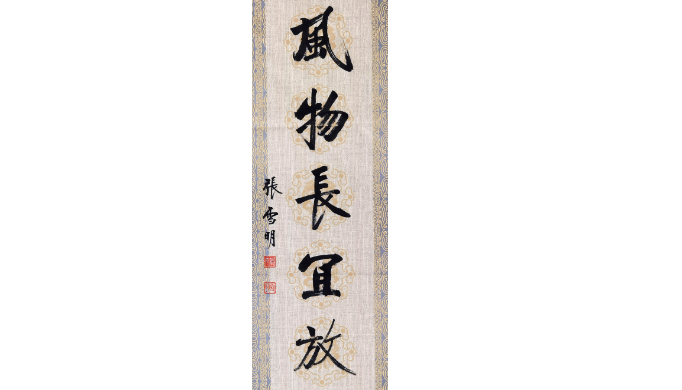 風物長冝放
張雪明